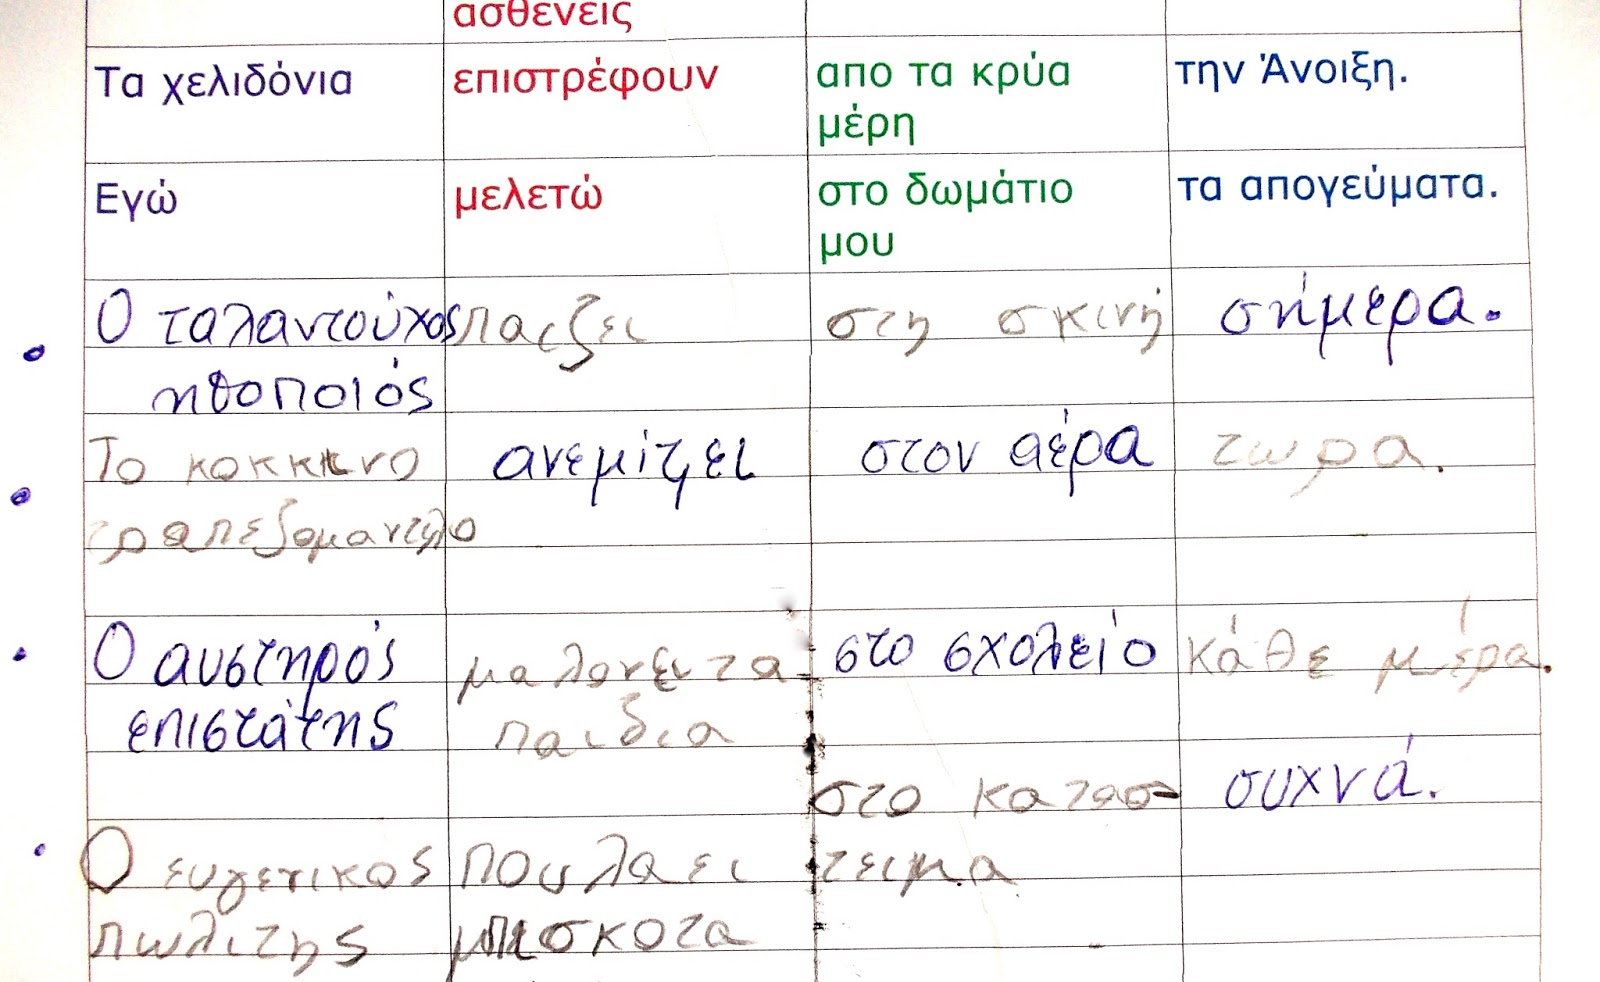 ασθενείς
Τα χελιδόνια επιστρέφουν απο τα κρύα την Άνοιξη.
μέρη
Εγώ μελετώ στο δωμάτιο τα απογεύματα.
μου
Ο ταλαντούχος παιζει στη σκινή σήμερα.
ηθοποιός
Το κοκκινο ανεμίζει στον αέρα τωρα.
τραπεζομαντηλο
Ο αυστηρός μαλονει τα στο σχολείο κάθε μέρα.
επιστάτης παιδια
στο κατασ- συχνά.
Ο ευγενικος πουλαει τειμα
πωλιτης μπισκοτα